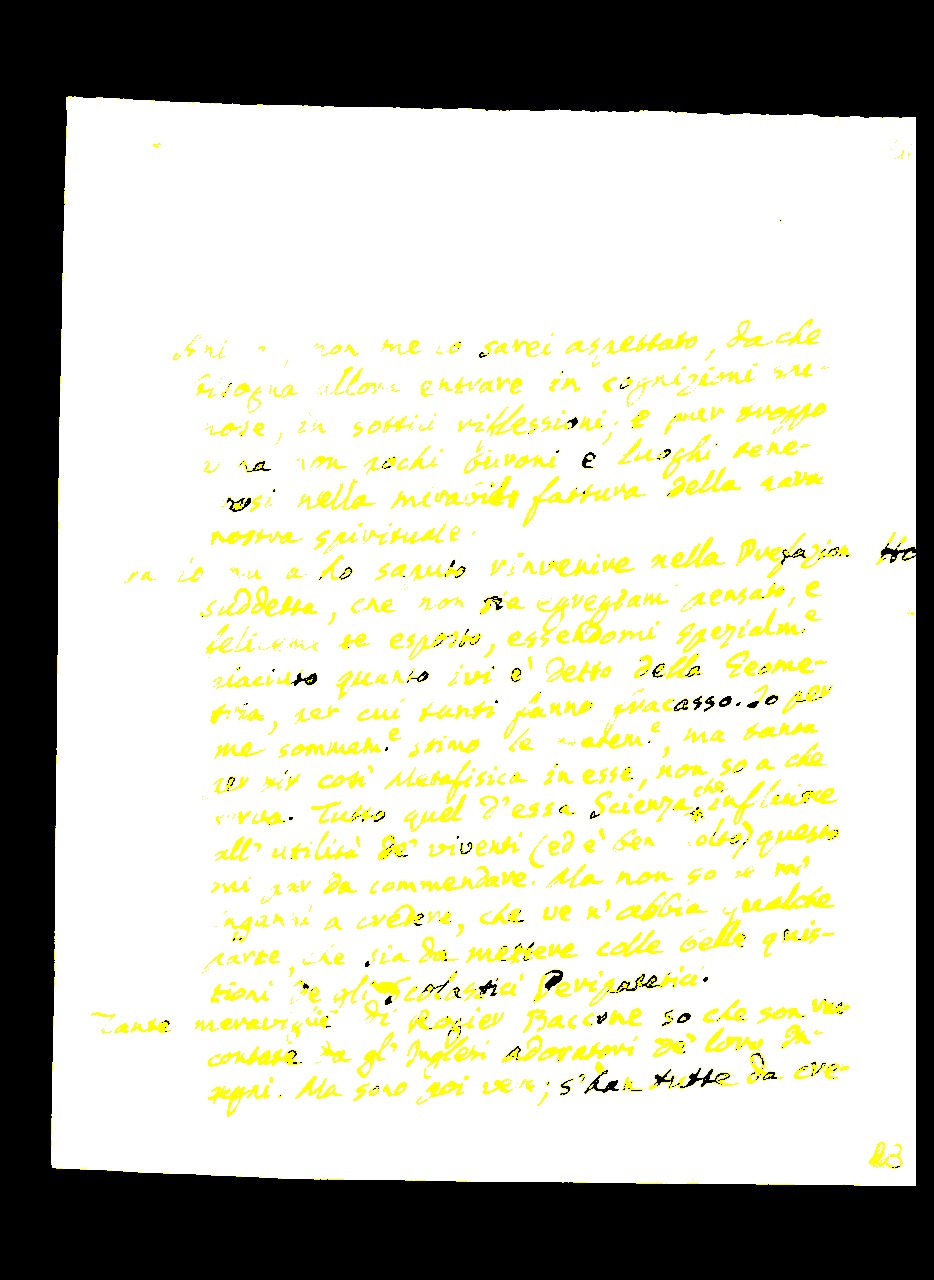 non me lo sarei aspettato, da che
bisogna allora entrare in cognizioni
in sottili riflessioni, e pur troppo
non pochi buroni e luoghi tene-
nella fattura della
nostra spirituale.
io ho saputo rinvenire nella Prefazion
suddetta, che non sia egregiam pensato, e
te esposto, essendomi spezialm.e
piaciuto quanto ivi è detto della Geome-
tria, per cui tanti fanno fracasso. Io per
me sommam.e stimo le matem.e, ma tanta
così Metafisica in esse, non so a che
serva. Tutto quel d'essa Scienza, che influisce
all' utilità de' viventi (ed è ben molto) questo
mi par da commendare. Ma non so se m'
inganni a credere, che ve n' abbia qualche
parte, che sia da mettere colle belle quis-
tioni de gli Scolastici Peripatetici.
Tante meraviglie di Rogier Baccone so che son
contate da gl' Inglesi adoratori de' loro In-
gegni. Ma sono poi vere; s'han tutte da cre-